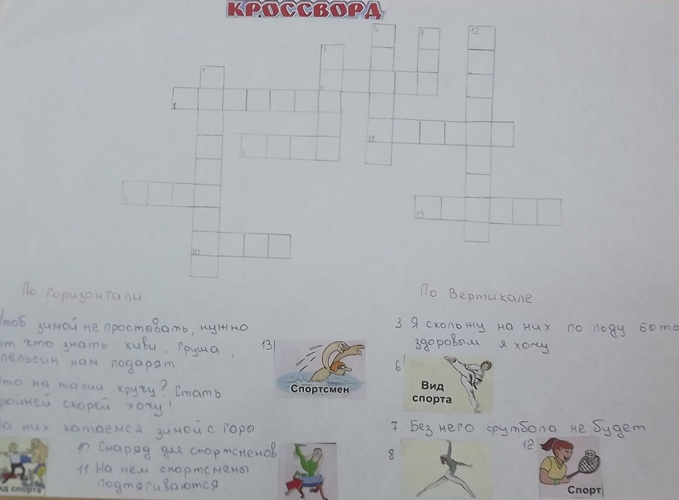 КРОССВОРД
По Горизонтали
чтоб зимой не простывать, нужно
что знать киви, груша,
апельсин нам подарят
что на талии кручу? Стать
стройней скорей хочу!
На них катаемся зимой с горы
10 Снаряд для спортсменов
11 На нем спортсмены
подтягиваются.
13
Спортсмен
вид спорта
По Вертикале
3 Я скольжу на них по льду быть
здоровым я хочу
6
Вид
спорта
7 Без него футбола не будет
8
12
Спорт